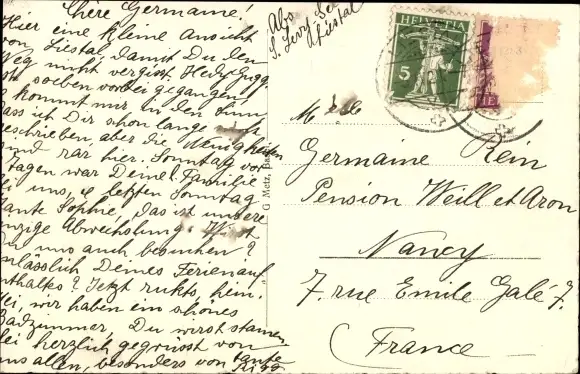 Chère Germaine!
Hier eine kleine Ansicht
von Liestal, damit Du den
Weg nicht vergisst. Hedy Gugg.
ist soeben vorbei gegangen!
kommt mir in den Sinn
dass ich Dir schon lange
geschrieben, aber die Neuigkeiten
sind rar hier. Sonntag vor
Tagen war Deine Familie
bei uns, letzten Sonntag
Tante Sophie, das ist unsere
einzige Abwechslung. Wirst
Du uns auch besuchen?
anlässlich Deines Ferienauf
enthaltes? Jetzt rukts, hein.
wir haben ein schönes
Badzimmer, Du wirst staunen.
Sei herzlich gegrüsst von
uns allen, besonders von Tante
Abs
S. Levy
Liestal
HELVETIA
5
G Metz, Bas
Mlle
Germaine Rein
Pension Weill et Aron
Nancy
7. rue Emile Galé 7.
France